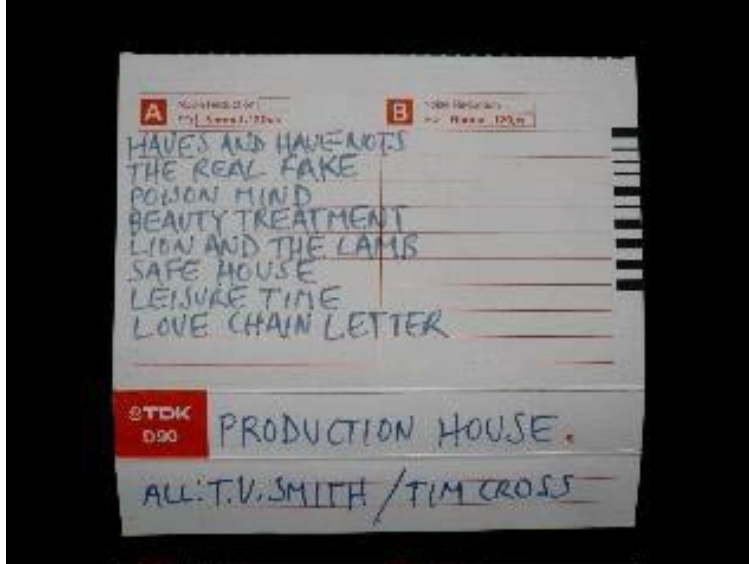 A
B
HAVES AND HAVE NOTS
THE REAL FAKE
POISON MIND
BEAUTY TREATMENT
LION AND THE LAMB
SAFE HOUSE
LEISURE TIME
LOVE CHAIN LETTER
TDK
D90
PRODUCTION HOUSE.
ALL: T.V. SMITH / TIM CROSS